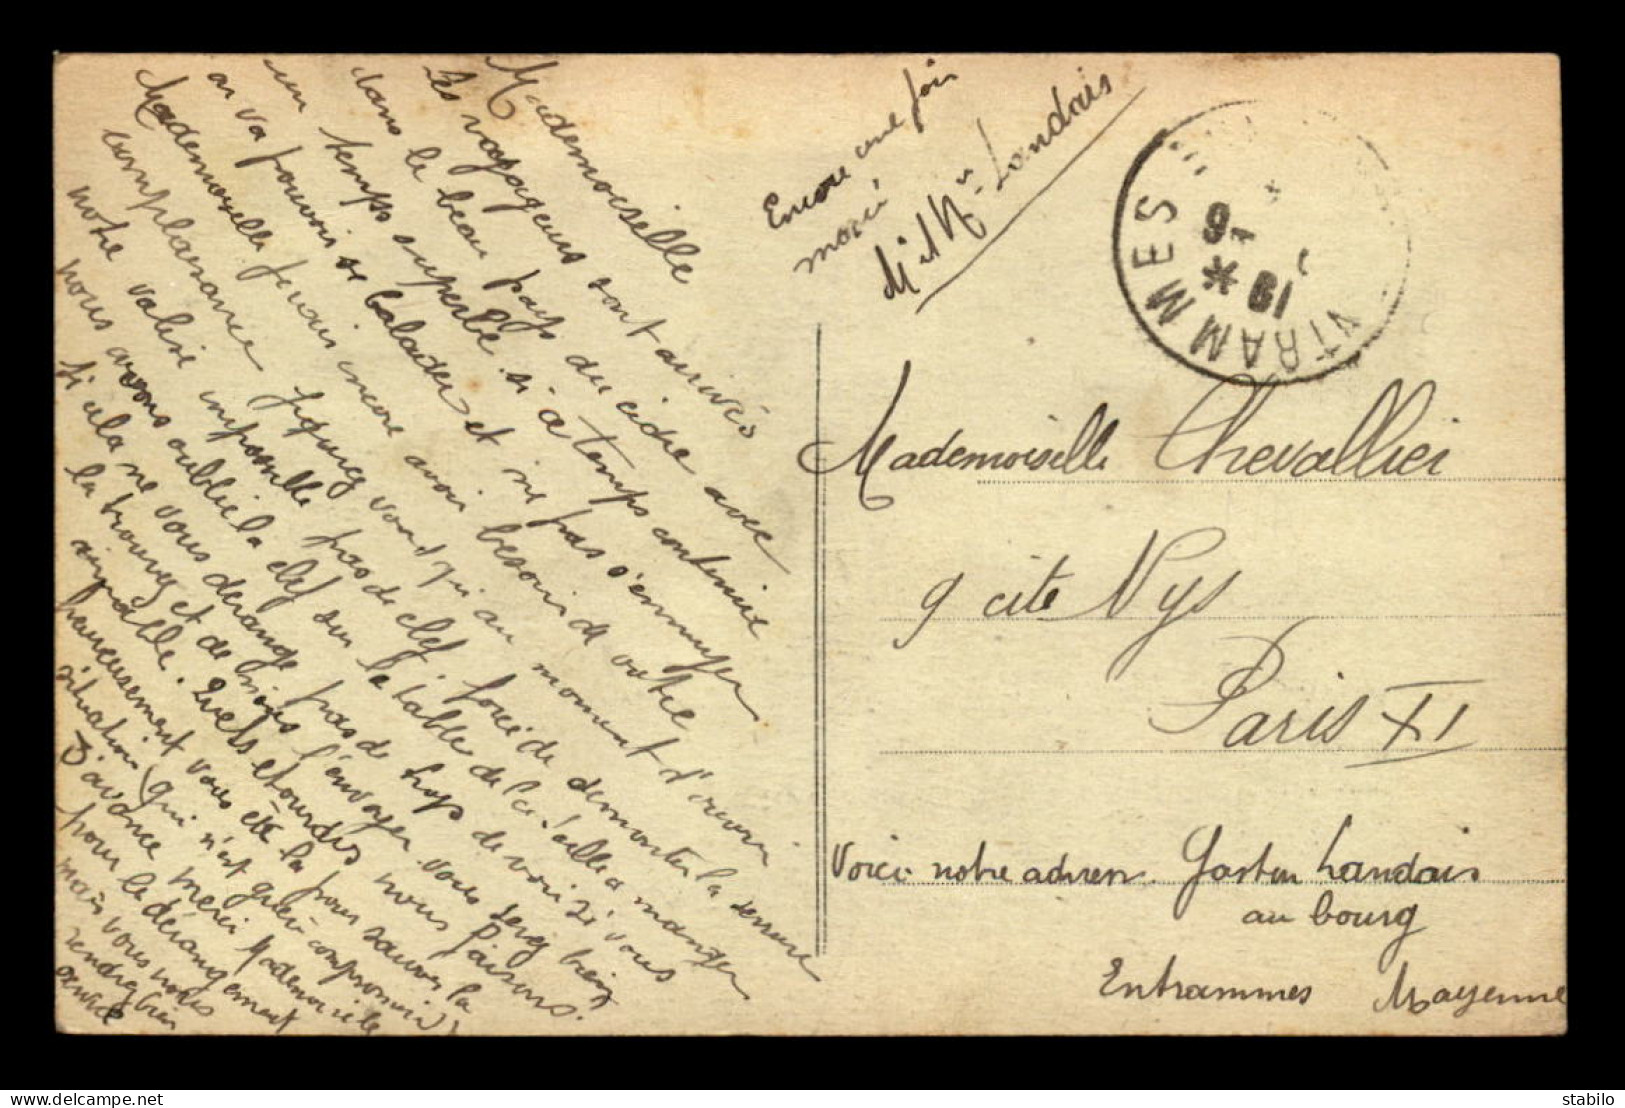 Mademoiselle
Les voyageurs sont arrivés
dans le beau pays du cidre avec
un temps superbe. si ce temps continue
on va pouvoir se balader et ne pas s'ennuyer
Mademoiselle je vais encore avoir besoin de votre
complaisance figurez vous qu'au moment d'ouvrir
notre valise impossible pas de clef forcé de démonter la serrure
nous avons oublié la clef sur la table de la salle a manger
si cela ne vous derange pas de trop de voir si vous
la trouvez et de nous l'envoyer vous serez bien
aimable. Quels etourdis nous faisons.
heureusement vous etes la pour sauver la
situation (qui n'est guère compromise)
d'avance merci Mademoiselle
pour le dérangement
mais vous nous
rendrez bien
service
Encore une fois
merci
M et Mme Landais
ENTRAMMES
6
*
Mademoiselle Chevallier
9 cite Nys
Paris XI
Voici notre adresse Gaston Landais
au bourg
Entrammes Mayenne
stabilo